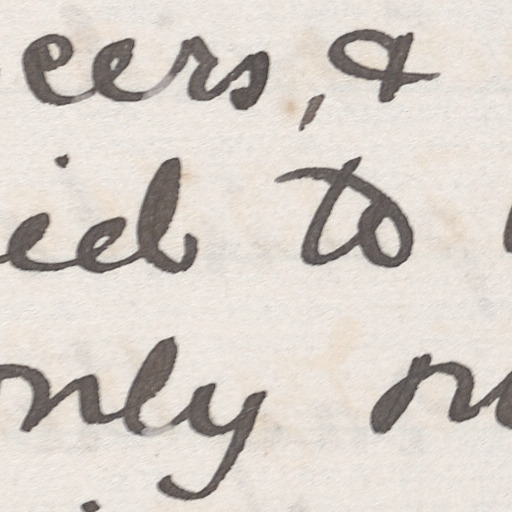 eers, &
ied to
only on